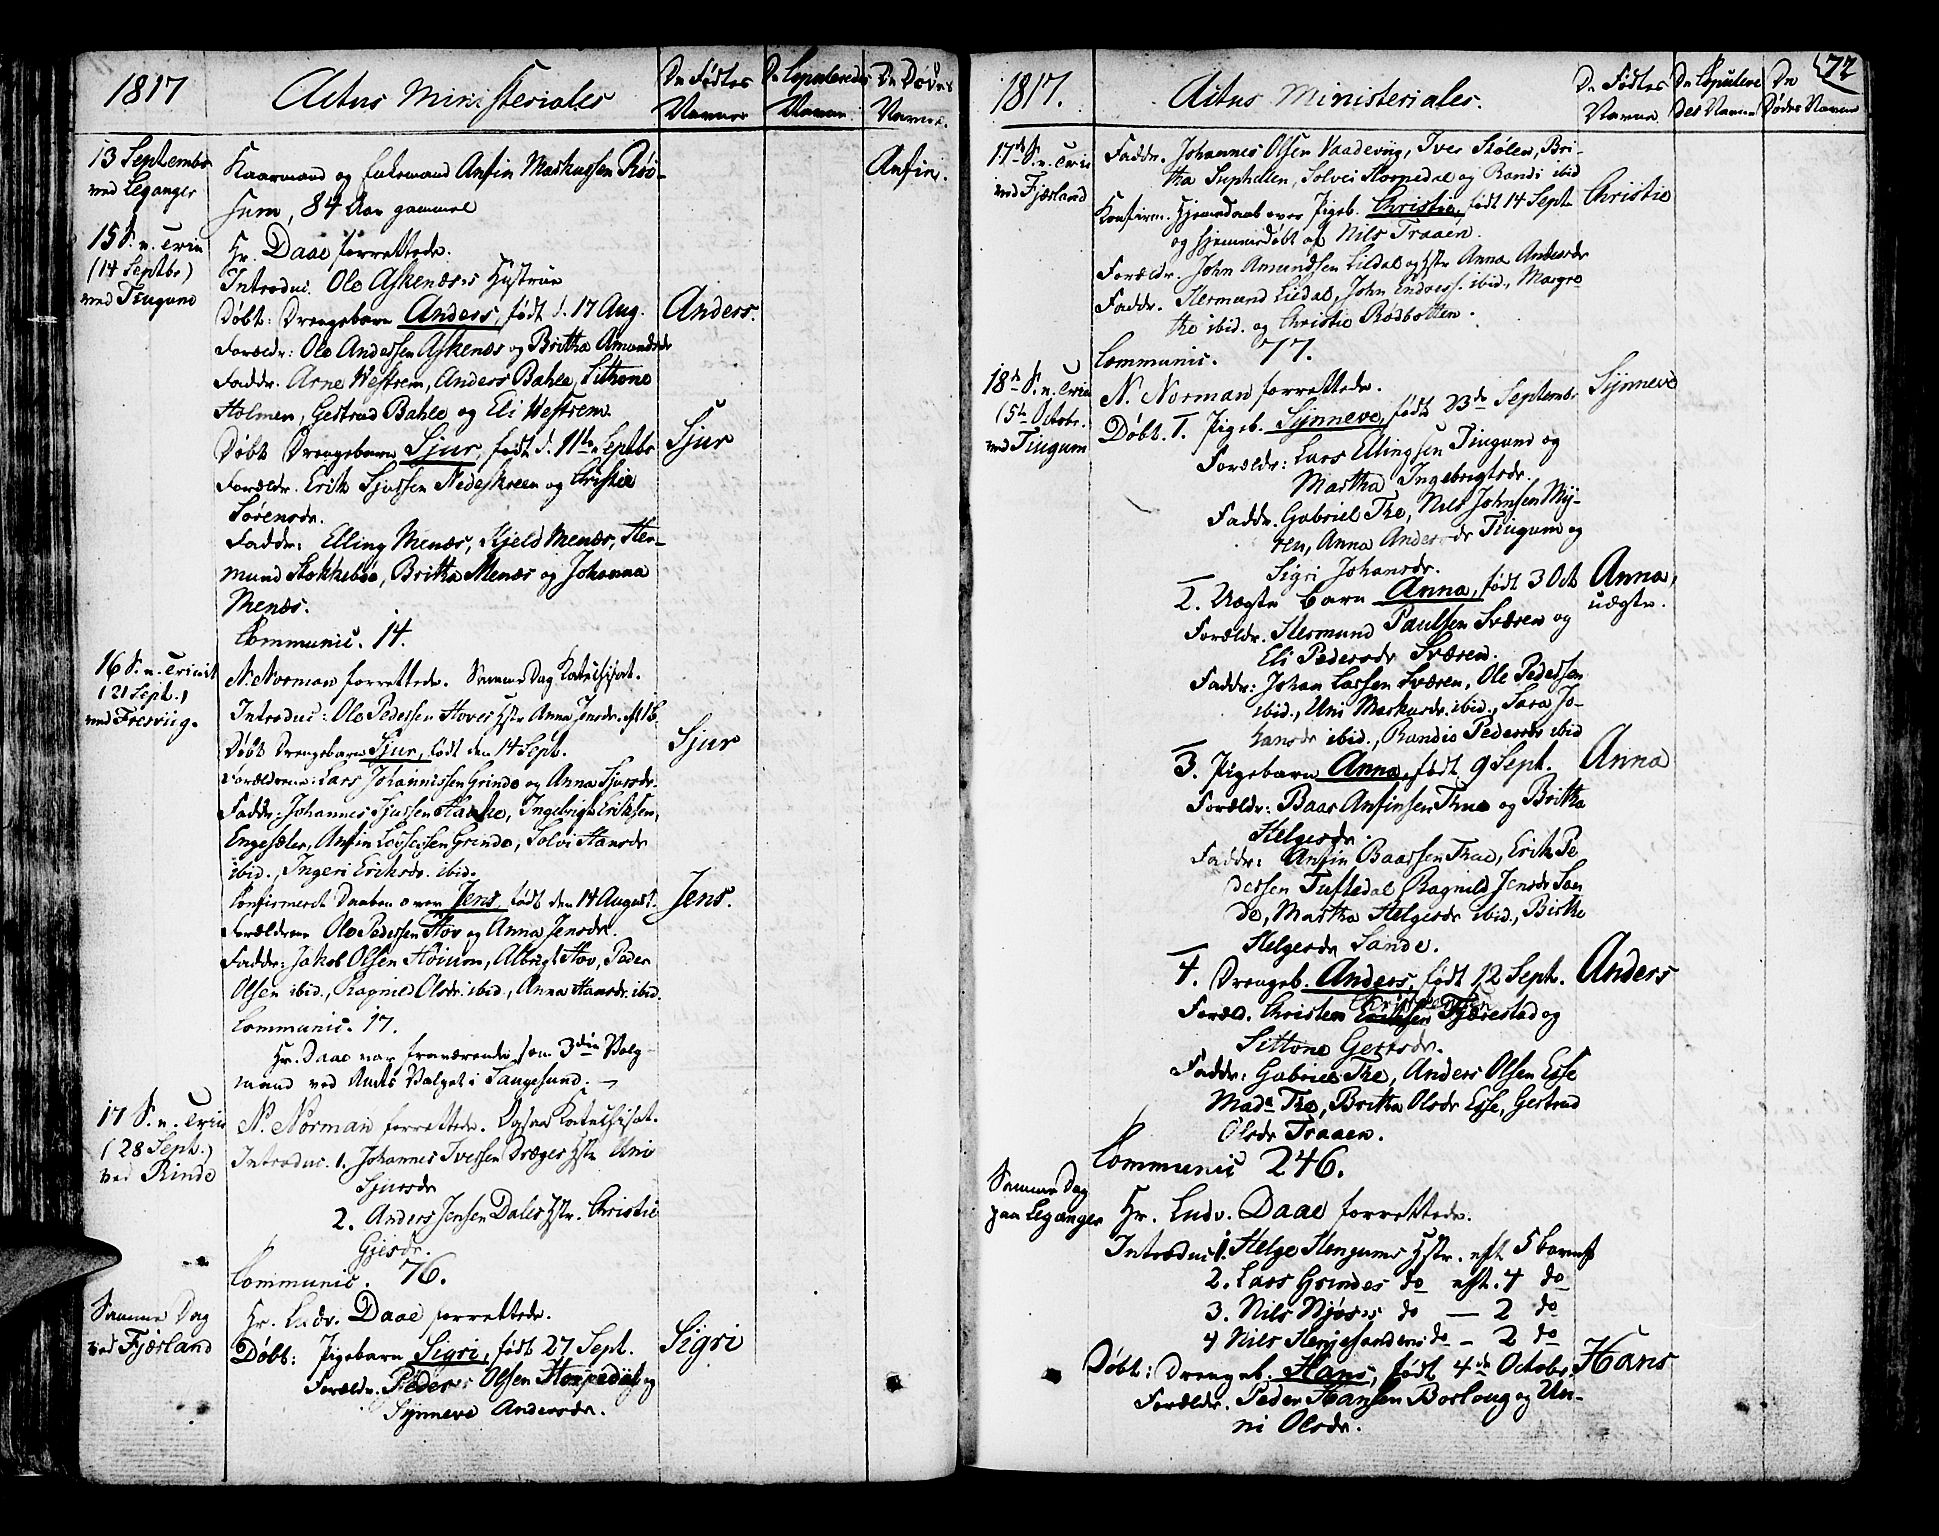 1817
Actus Ministeriales
De Fødtes Navne
De Copuleredes Navne
De Dødes Navne.
13 Septembr
ved Leganger
Kaarmand og Enkemand Anfin Markussen Röi-
sum, 84 Aar gammel
Anfin.
15 S. n. Trin
(14 Septbr)
ved Tiugum
Hr. Daae forrettede.
Introduc. Ole Askenæses Hustrue
Døbt: Drengebarn Anders, født d. 17 Aug.
Anders.
Forældr: Ole Anderssen Askenæs og Britha Amundsdr
Faddr. Arne Westrem, Anders Bahle, Sithone
Holmen, Gertrud Bahle og Eli Westrem.
Døbt Drengebarn Sjur, født d. 11te Septbr
Sjur
Forældr. Erik Sjurssen Nedeskreen og Christie
Sørensdr.
Faddr: Elling Menæs, Kjeld Menæs, Her-
mund Stokkebøe, Britha Menæs og Johanna
Menæs.
Communic. 14.
16 S. n. Trinit
(21 Sept.)
ved Fresviig.
N. Norman forrettede. Samme Dag Katechisat.
Introduc: Ole Pederssen Hoves Hstr Anna Jensdr. eft 1 b.
Døbt Drengebarn Sjur, født den 14 Sept.
Sjur
Forældrene: Lars Johannessen Grinde og Anna Sjursdr.
Faddr: Johannes Sjurssen Hauke, Ingebrigt Erikssen
Engesæter, Anfin Grinde, Solvi Hansdr
ibid., Ingeri Eriksdr. ibid.
Confirmeret Daaben over Jens, født den 14 August.
Jens.
Forældrene Ole Pederssen Hov og Anna Jensdr.
Faddr: Jakob Olsen Höium, Albrigt Hov, Peder
Olsen ibid., Ragnild Olsdr. ibid., Anna Hansdr. ibid.
Communic. 17.
Hr. Daae var fraværende som 3die Valg-
mand ved Amts Valget i Laugesund.
17 S. n. Trin
(28 Sept.)
ved Rinde
N. Norman forrettede. Ogsaa Katechisat.
Introduc. 1. Johannes Iverssen Drægers Hstr Uni
Sjursdr
2. Anders Jensen Dales Hstr. Christie
Gjersdr.
Communic. 76.
Samme Dag
ved Fjærland
Hr. Ludv. Daae forrettede.
Døbt: Pigebarn Sigri, født 27 Sept.
Sigri
Forældr. Peder Olsen Horpedal og
Synneve Andersdr.
1817.
Actus Ministeriales.
De Fødtes Navne
De Copulere des Navne
De Dødes Navne
72
17de S. n. Trin
ved Fjærland
Faddr. Johannes Olsen Vaadeviig, Iver Stølen, Bri-
tha Suphellen, Solvei Horpedal og Randi ibid
Konfirm. Hjemedaab over Pigeb. Christie, født 14 Sept.
Christie
og hjemmedøbt af Nils Traaen.
Forældr. John Amundsen Lidal og Hstr Anna Andersdr
Faddr. Hermund Lidal, John Endress. ibid., Margre-
the ibid. og Christie Rødbotten.
Communic. 77.
18de S. n. Trin
(5te Octobr.
ved Tiugum
N. Norman forrettede.
Døbt. 1. Pigeb. Synneve, født 23de Septembr
Synneve
Forældr: Lars Ellingsen Tiugum og
Martha Ingebrigtsdr.
Faddr. Gabriel Tho, Nils Johnsen My-
ren, Anna Andersdr Tiugum og
Sigri Johansdr.
2. Uægte barn Anna, født 3 Oct
Anna,
uægte.
Forældr. Hermund Paulsen Sværen og
Eli Pedersdr Sværen.
Faddr: Johan Larssen Sværen, Ole Pederssen
ibid., Uni Markusdr. ibid., Sara Jo-
hansdr ibid., Randie Pedersdr ibid
3. Pigebarn Anna, født 9 Sept.
Anna
Forældr: Baar Anfinsen Thue og Britha
Helgesdr.
Faddr: Anfin Baarssen Thue, Erik Pe
derssen Tuftedal Ragnild Jensdr San
de, Martha Helgesdr ibid., Birthe
Helgesdr Sande.
4. Drengeb. Anders, født 12 Sept.
Anders
Foræld. Christen Fjærestad og
Sittone Gertsdr.
Faddr: Gabriel Tho, Anders Olsen Esse
Mada Tho, Britha Olsdr Esse, Gertrud
Olsdr Traaen.
Communic 246.
Samme Dag
paa Leganger
Hr. Ludv. Daae forrettede.
Introduc. 1. Helge Hengums Hstr. eft 5 barnef
2. Lars Grindes do eft. 4 do
3. Nils Njøses do — 2 do
4 Nils Henjesandens do — 2 do
Døbt: Drengeb. Hans, født 4de Octobr.
Hans
Forældr. Peder Hansen Borlaug og Un-
ni Olsdr.